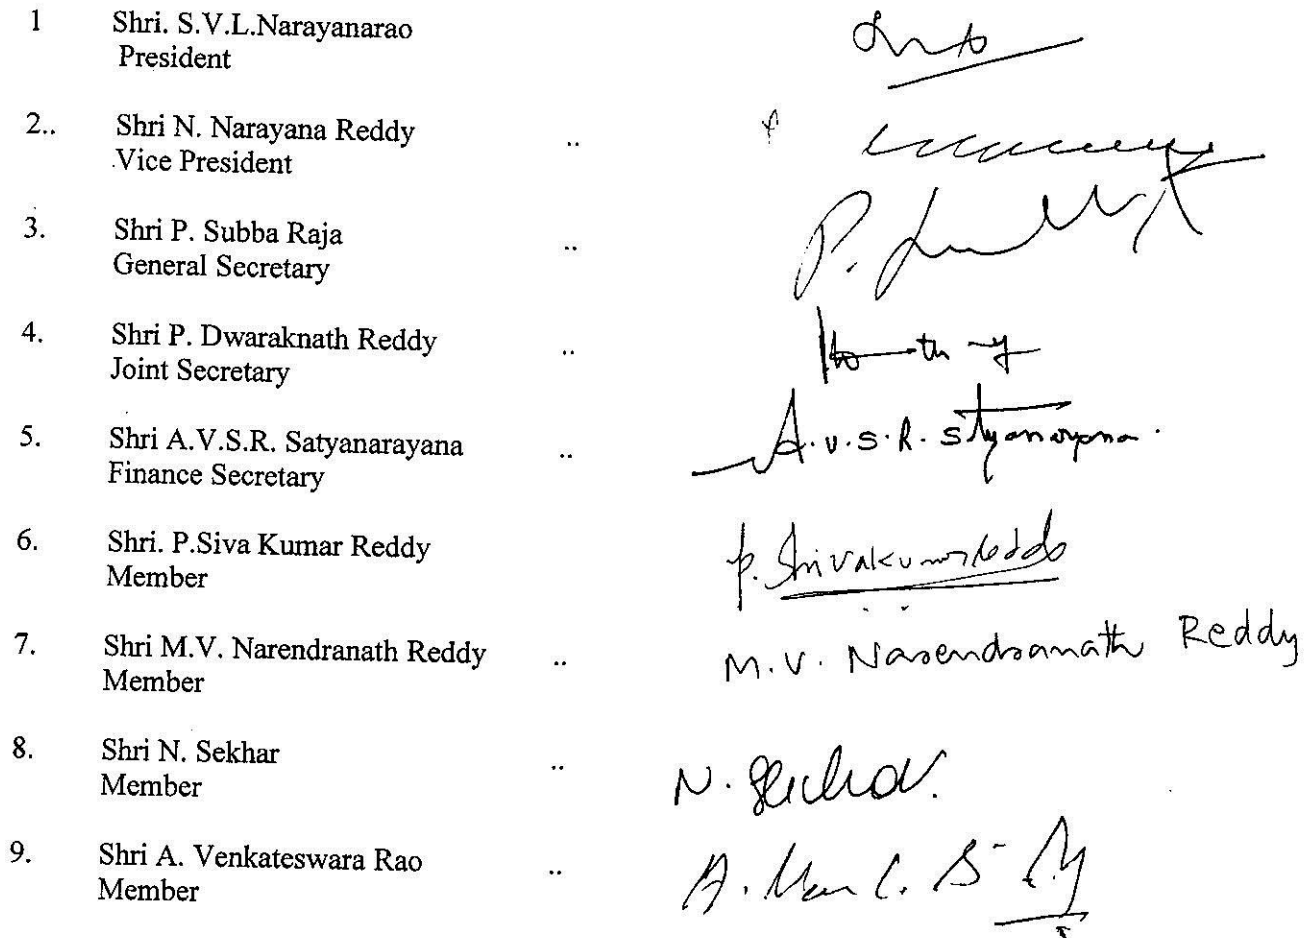 1 Shri. S.V.L.Narayanarao
President
2.. Shri N. Narayana Reddy ..
Vice President
3. Shri P. Subba Raja ..
General Secretary
P.
4. Shri P. Dwaraknath Reddy ..
Joint Secretary
5. Shri A.V.S.R. Satyanarayana .. A.v.s.R. Satyanarayana.
Finance Secretary
6. Shri. P.Siva Kumar Reddy P. Shivakumar Reddy
Member
7. Shri M.V. Narendranath Reddy .. M.V. Narendranath Reddy
Member
8. Shri N. Sekhar .. N. Sekhar.
Member
9. Shri A. Venkateswara Rao .. A.
Member